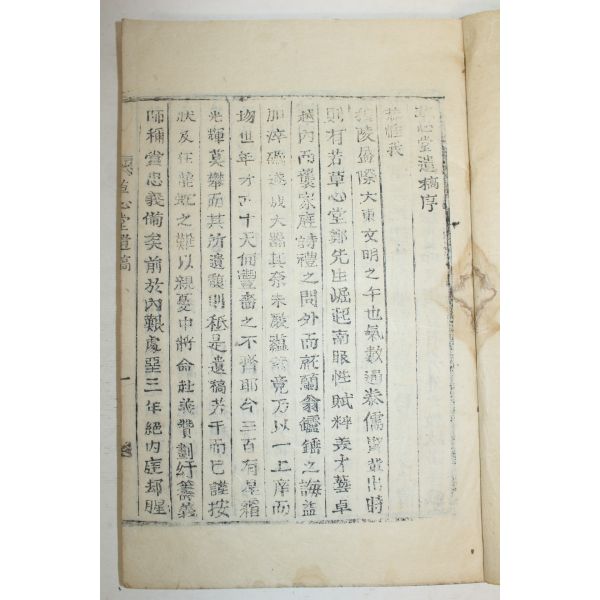 草心堂遺稿序
恭惟我
穆陵盛際大東文明之午也氣數過泰儒賢輩出時
則有若草心堂鄭先生崛起南服性賦粹美才藝卓
越內而襲家庭詩禮之聞外而就蘭翁鑪錘之誨益
加淬礪遂成大器其奈未竟乃以一上庠而
均世年才五十天何豐嗇之不齊耶今三百有星霜
光輝莫攀而其所遺馥則秪是遺稿若干而已謹按
狀及任龍蛇之難以親憂中將命社義贊劃紆籌義
師稱當忠義備矣前於內艱處堊三年絕內庭却腥
草心堂遺稿
序
一